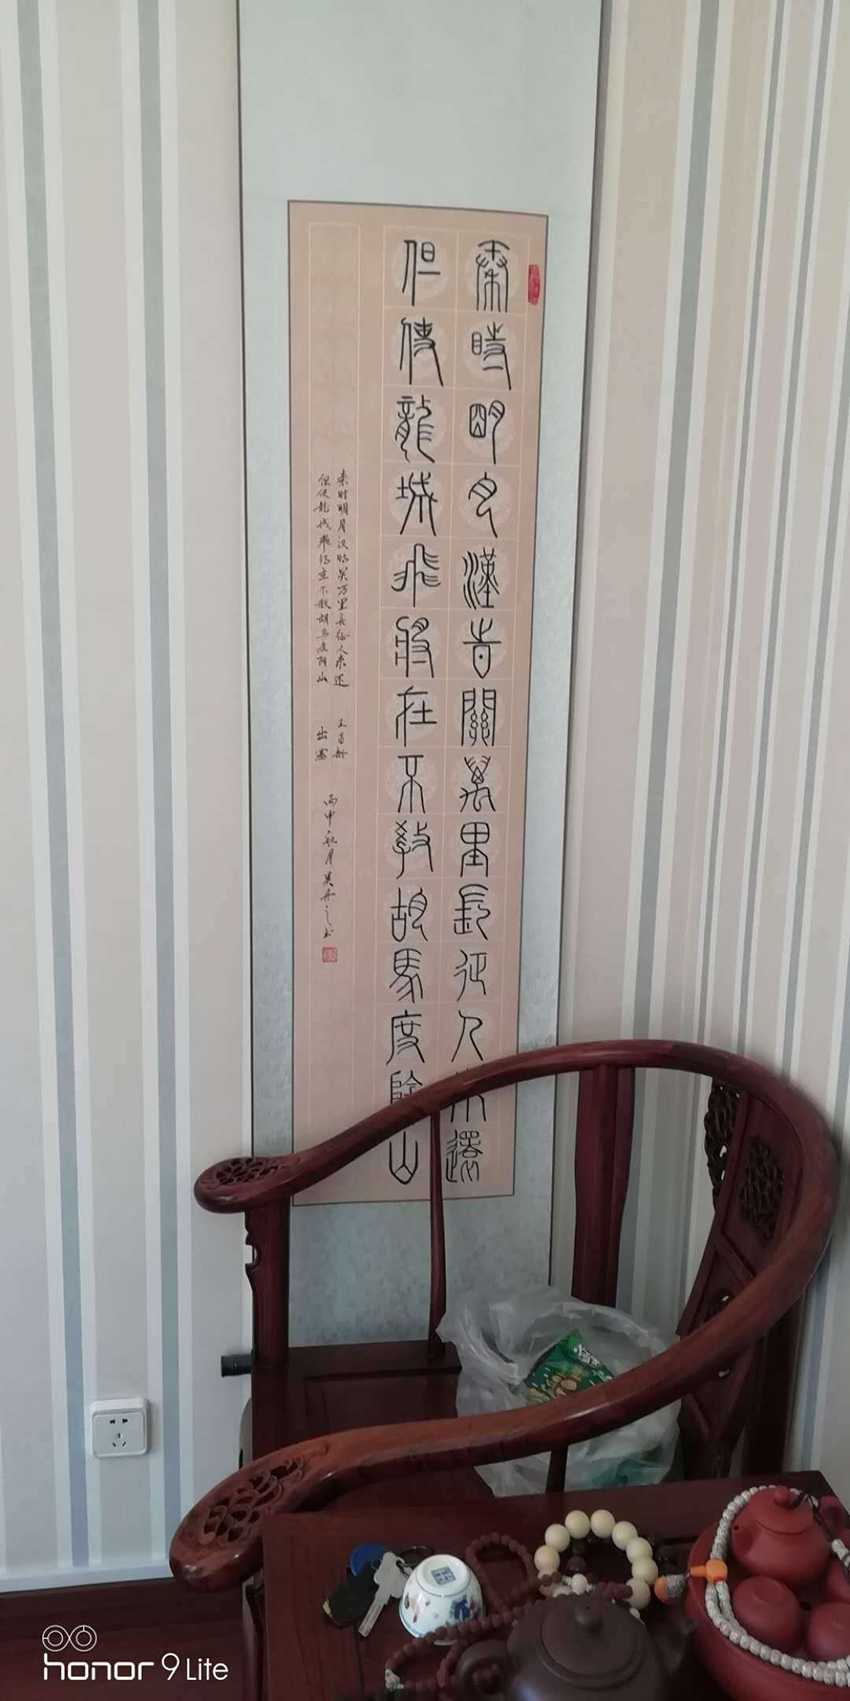 秦時明月漢時關萬里長征人未還
但使龍城飛將在不教胡馬度陰山
秦时明月汉时关万里长征人未还 王昌龄
但使龙城飞将在不教胡马度阴山 出塞
丙申秋月吴丹之书
honor 9 Lite